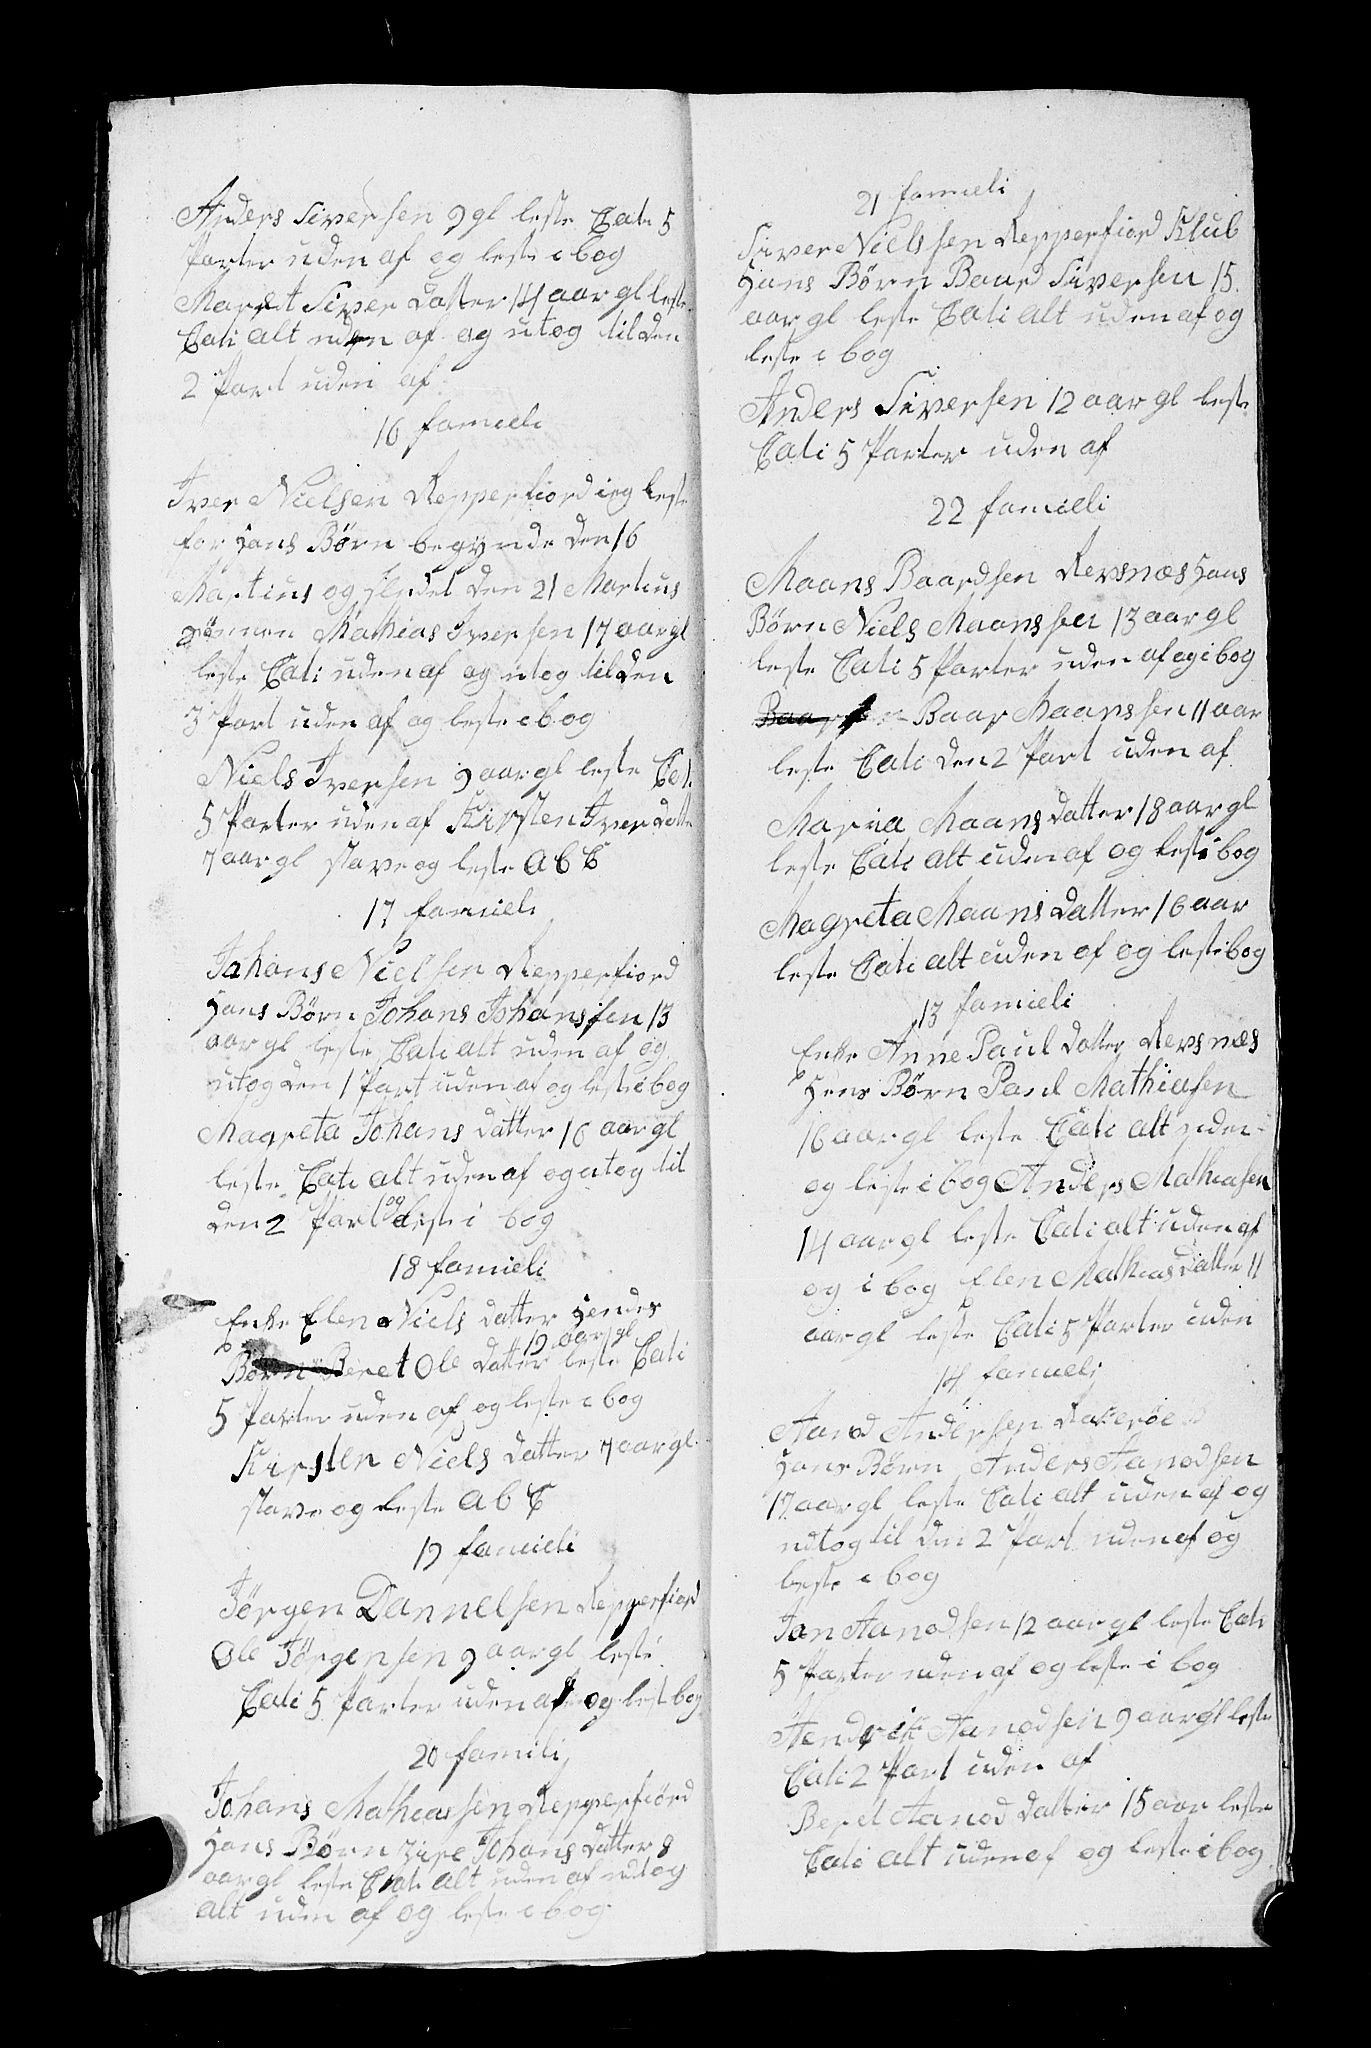 Anders Siversen 9 gl leste Cati 5
Parter uden af og leste i bog
Maret Siver datter 14 aar gl leste
Cati alt uden af og utog til den
2 Part uden af
16 familli
Iver Nielsen Repperfiord ieg leste
for Hans Børn begynde den 16
Martius og Endet den 21 Martius
Sønnen Mathias Iversen 17 aar gl
leste Cati uden af og utog til den
3 Part uden af og leste i bog
Niels Iversen 9 aar gl leste Cat.
5 Parter uden af Kirsten Iver datte
7 aar gl stave og leste AbC
17 familli
Johans Nielsen Repperfiord
Hans Børn Johans Johanssen 13
aar gl leste Cati alt uden af og
utog den 1 Part uden af og leste i bog
Magreta Johans datter 16 aar gl
leste Cati alt uden af og utog til
den 2 Part og leste i bog
18 familli
Enke Elen Niels datter Hendes
19 aar gl
Børn Beret Ole datter leste Cati
5 Parter uden af og leste i bog
Kirsten Niels datter 7 aar gl
stave og leste AbC
19 familli
Jørgen Dannelsen Repperfiord
Ole Jørgensen 9 aar gl leste
Cati 5 Parter uden af og lest bog
20 famili
Johans Mathiassen Repperfiord
Hans Børn Johans datter 8
aar gl leste Cati alt uden af udtog
alt uden af og leste i bog
21 familli
Siver Nielssen Repperfiord Klub
Hans Børn Baar Siversen 15
aar gl leste Cati alt uden af og
leste i bog
Anders Siversen 12 aar gl leste
Cati 5 Parter uden af
22 familli
Maans Baardsen Revsnæs Hans
Børn Niels Maanssen 13 aar gl
leste Cati 5 Parter uden af og i bog
Baar Maanssen 11 aar
leste Cati den 2 Part uden af
Maria Maans datter 18 aar gl
leste Cati alt uden af og lest i bog
Magreta Maans datter 16 aar
leste Cati alt uden af og lest i bog
13 familli
Enke Anne Paul datter Revsnæs
Hens Børn Paul Mathiasen
16 aar gl leste Cati alt uden
og leste i bog Anders Mathiasen
14 aar gl leste Cati alt uden af
og i bog Elen Mathias datter 11
aar gl leste Cati 5 Parter uden
14 familli
Aanod Andersen
Hans Børn Anders Aanodsen
17 aar gl leste Cati alt uden af og
udtog til den 2 Part uden af og
leste i bog
Jon Aanodsen 12 aar gl leste Cati
5 Parter uden af og leste i bog
Hendrik Aanodsen 9 aar gl leste
Cati 2 Part uden af
Beret Aanod datter 15 aar leste
Cati alt uden af og leste i bog